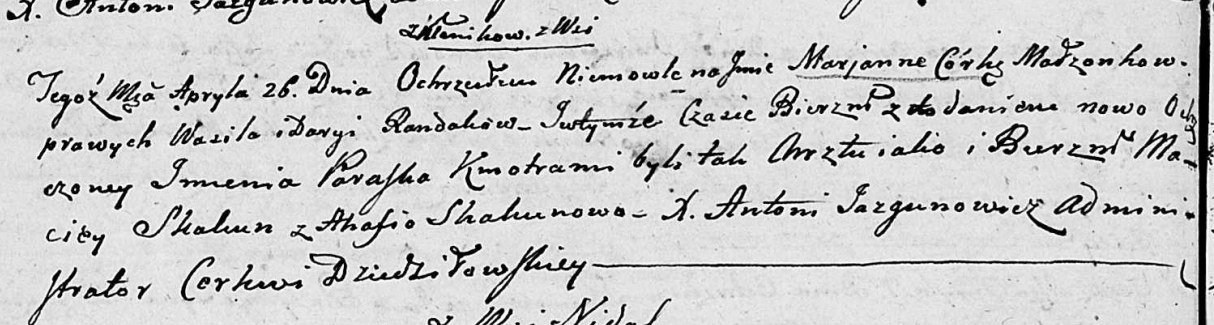 X. Antoni Jazgunowicz
z Klenikow. z Wsi
Tegoż Mca Apryla 26. Dnia Ochrzciłem Niemowle na Jmie Marjanne Córkę Małżonkow.
prawych Wasila i Daryi Randakow – Jwtymże Czasie Bierzm z dodaniem nowo Ochrz
czoney Jmienia Paraska Kmotrami byli tak Chrztu iako i Bierzm Ma-
ciey Skakun z Ahafio Skakunowo – X. Antoni Jazgunowicz Admini-
strator Cerkwi Dziedziłowskiey
z Wsi Nidal